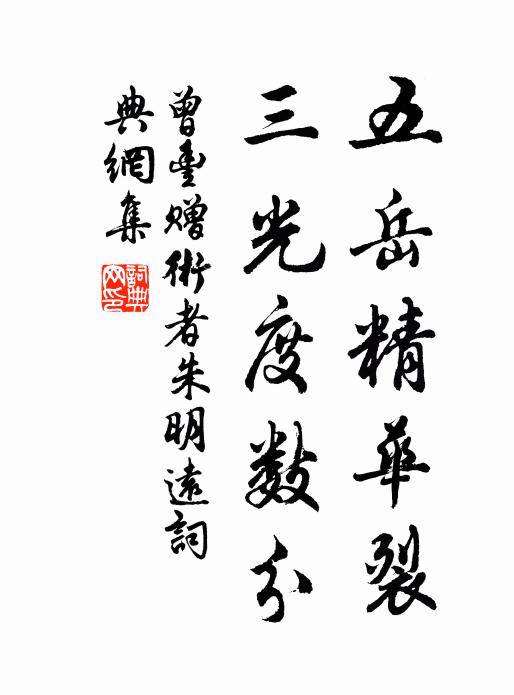 五岳精華裂
三光度数分
曾豐赠術者朱明遠詞
典網集
詞典
网印